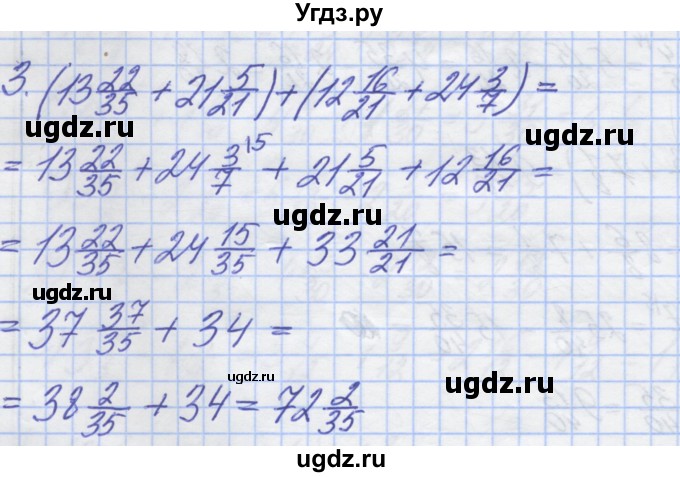 Угдз.ру
3. (13 22/35 + 21 5/21) + (12 16/21 + 24 3/7) =
= 13 22/35 + 24 3/7 15 + 21 5/21 + 12 16/21 =
= 13 22/35 + 24 15/35 + 33 21/21 =
= 37 37/35 + 34 =
= 38 2/35 + 34 = 72 2/35
ugdz.ru
ugdz.ru
ugdz.ru
ugdz.ru
ugdz.ru
ugdz.ru
ugdz.ru
ugdz.ru